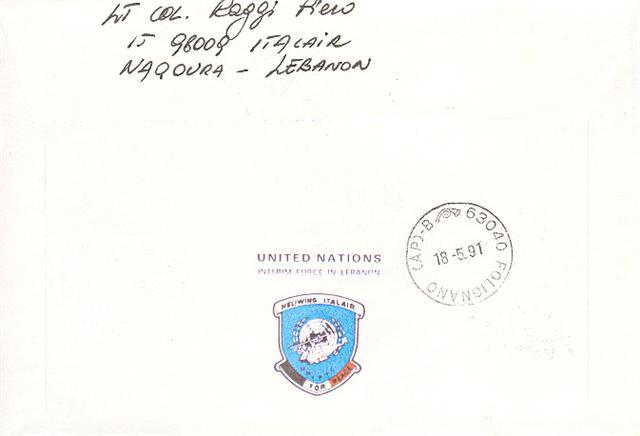 LT COL. Raggi Piero
IT 98009 ITALAIR
NAQOURA - LEBANON
UNITED NATIONS
INTERIM FORCE IN LEBANON
63040 FOLIGNANO (AP)-B
18-5.91
HELIWING ITALAIR
FOR PEACE